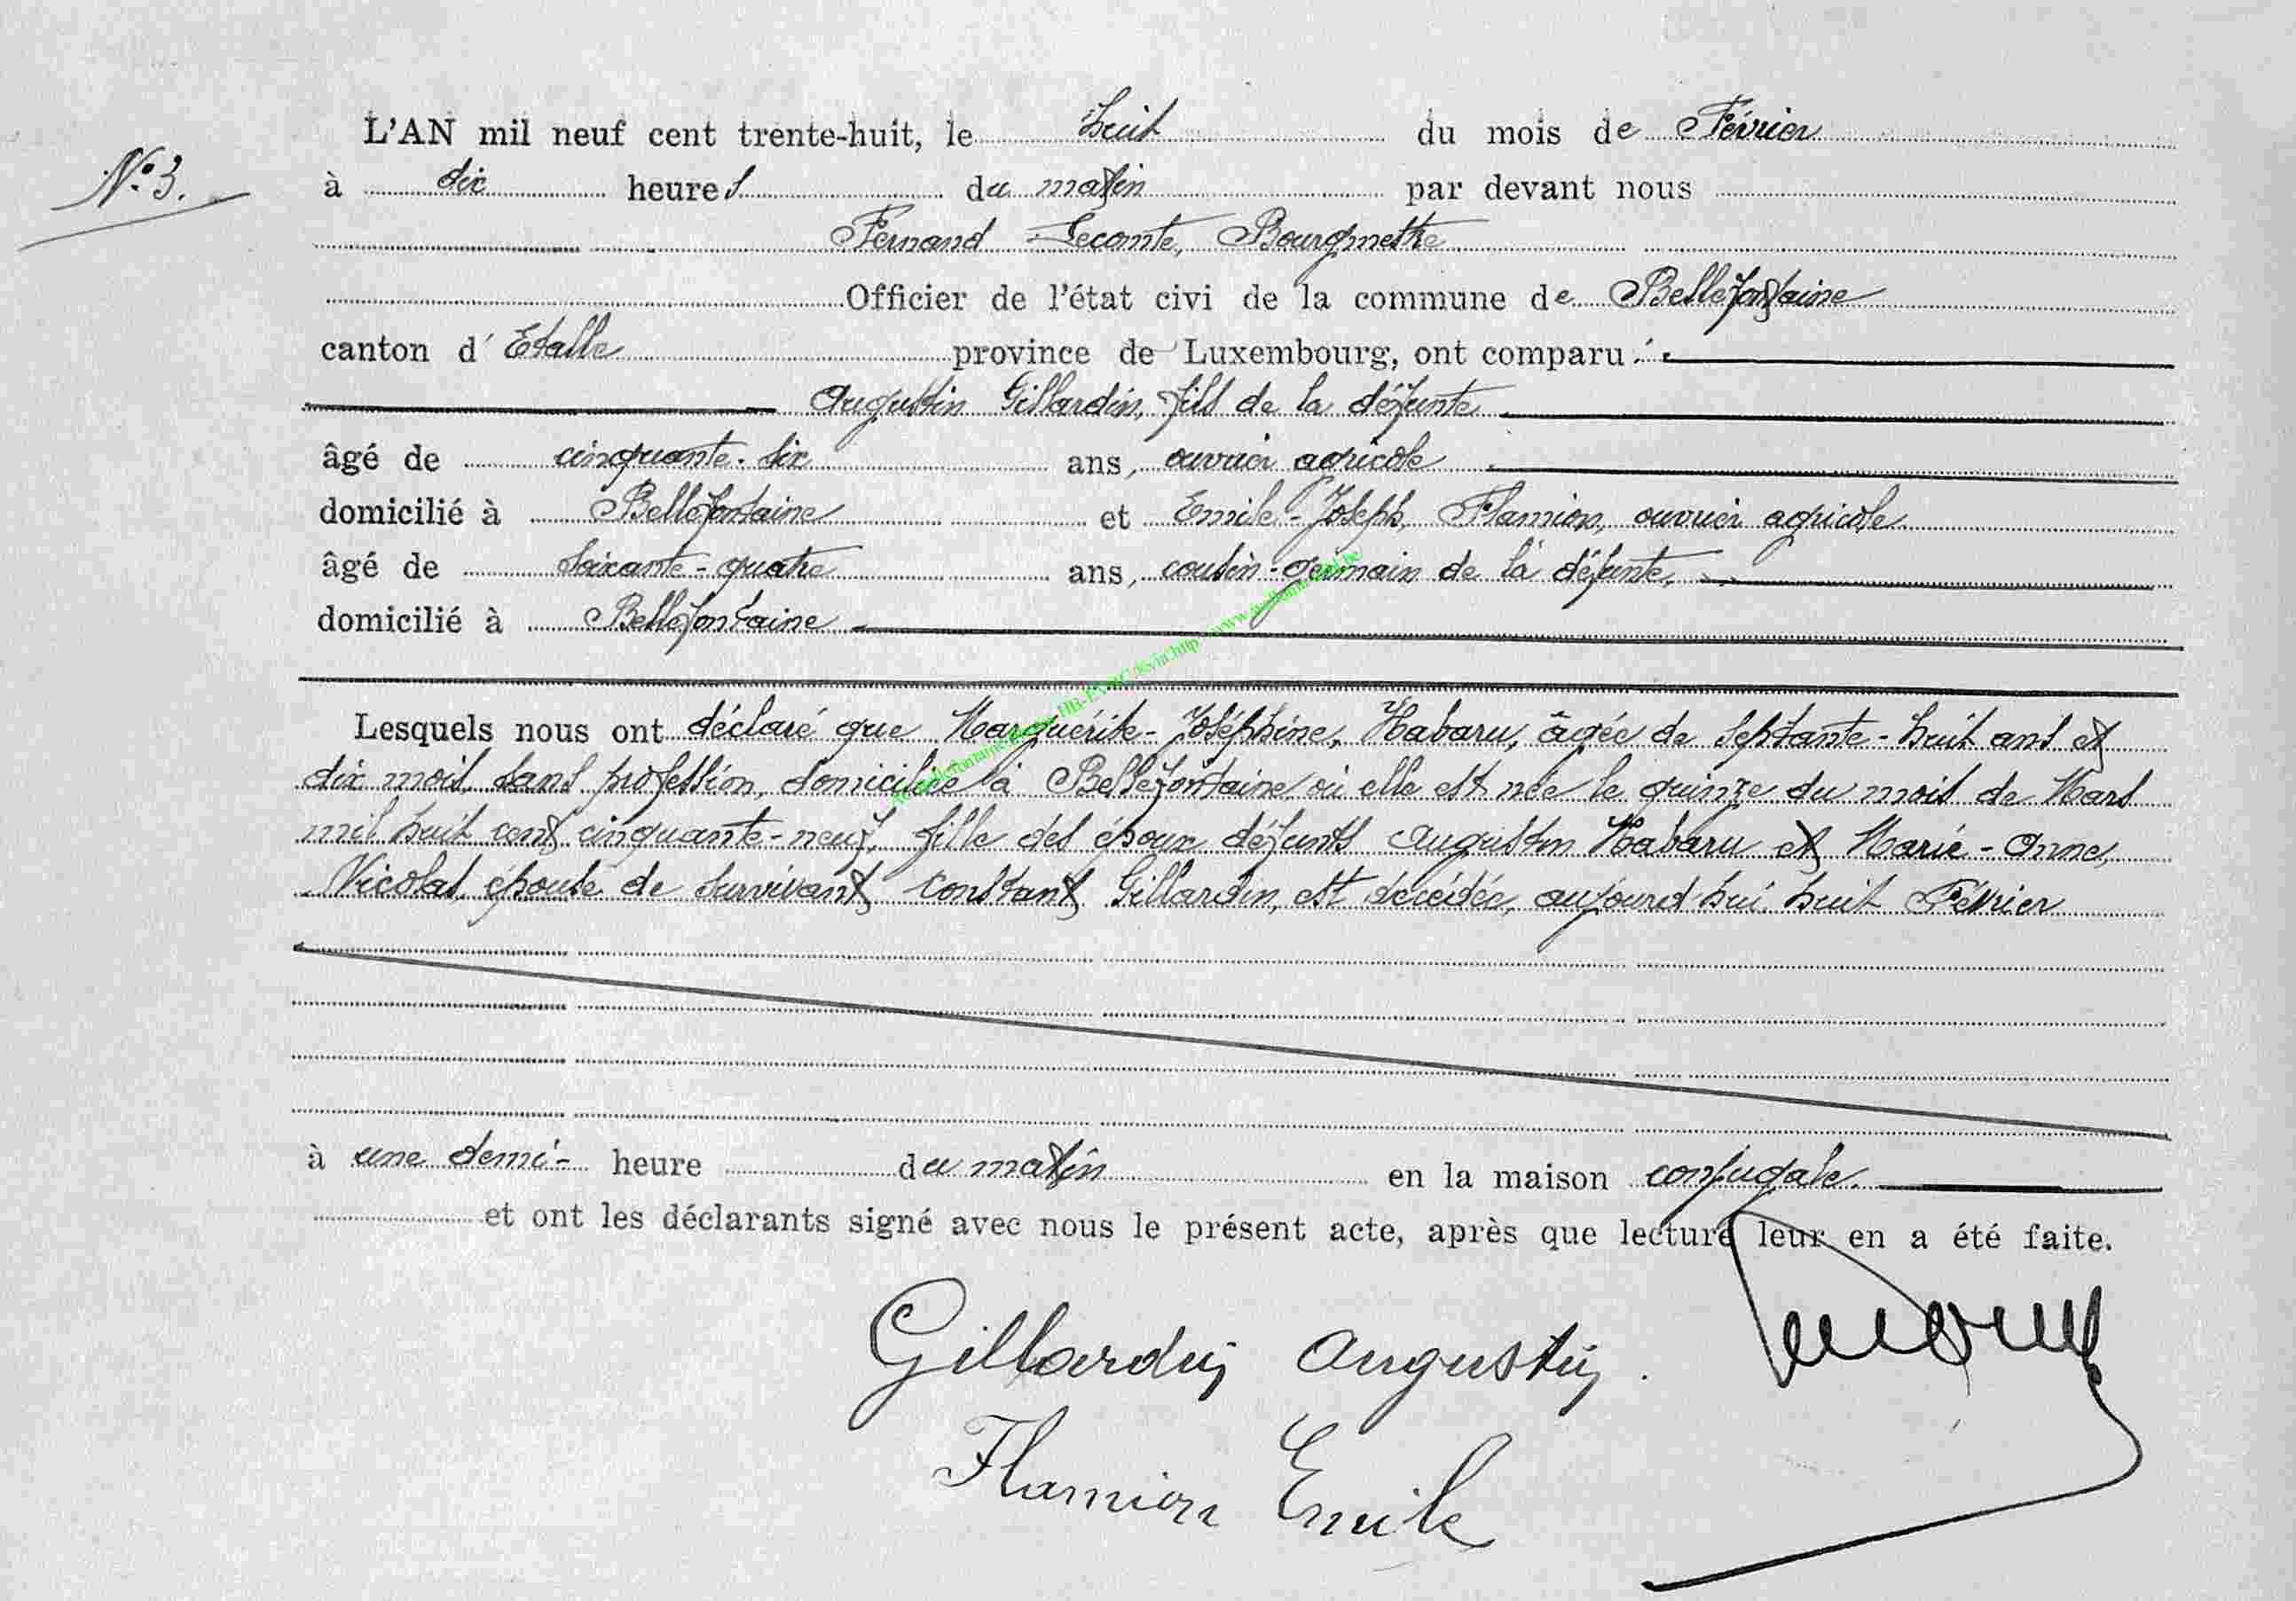 N.° 3.
L'AN mil neuf cent trente-huit, le huit du mois de Février
à dix heures du matin par devant nous
Fernand Leconte, Bourgmestre
Officier de l'état civi de la commune de Bellefontaine
canton d'Etalle province de Luxembourg, ont comparu :
Augustin Gillardin, fils de la défunte
âgé de cinquante-six ans, ouvrier agricole
domicilié à Bellefontaine et Emile-Joseph, Flamion, ouvrier agricole
âgé de soixante-quatre ans, cousin-germain de la défunte,
domicilié à Bellefontaine
Lesquels nous ont déclaré que Marguérite-Joséphine, Habaru, âgée de septante-huit ans et
dix mois, sans profession, domiciliée à Bellefontaine, où elle est née le quinze du mois de Mars
mil huit cent cinquante-neuf, fille des époux défunts Augustin Habaru et Marie-Anne,
Nicolas, épouse de survivant Constant Gillardin, est décédée, aujourd'hui huit Février
à une demi-heure du matin en la maison conjugale.
et ont les déclarants signé avec nous le présent acte, après que lecture leur en a été faite.
Gillardin Augustin.
Flamion Emile